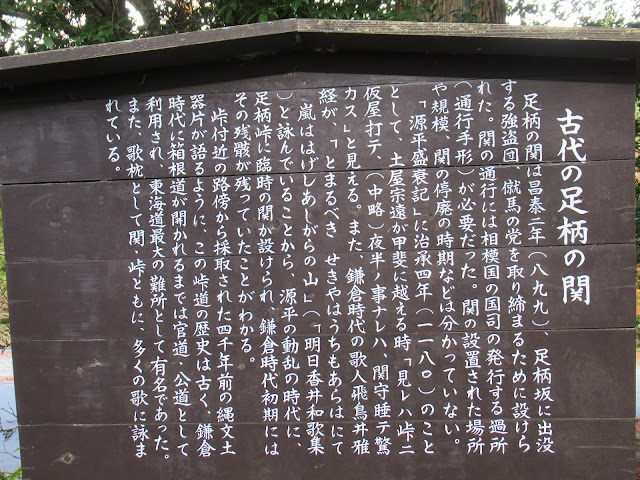 古代の足柄の関
足柄の関は昌泰二年（八九九）、足柄坂に出没
する強盗団、僦馬の党を取り締まるために設けら
れた。関の通行には相模国の国司の発行する過所
（通行手形）が必要だった。関の設置された場所
や規模、関の停廃の時期などは分かっていない。
「源平盛衰記」に治承四年（一一八〇）のこと
として、土屋宗遠が甲斐に越える時「見レハ峠ニ
仮屋打テ、（中略）夜半ノ事ナレハ、関守睡テ驚
カス」と見える。また、鎌倉時代の歌人飛鳥井雅
経が、「とまるべき　せきやはうちもあらはにて
嵐ははげしあしがらの山」（「明日香井和歌集
）と詠んでいることから、源平の動乱の時代に、
足柄峠に臨時の関が設けられ、鎌倉時代初期には
その残骸が残っていたことがわかる。
峠付近の路傍から採取された四千年前の縄文土
器片が語るように、この峠道の歴史は古く、鎌倉
時代に箱根道が開かれるまでは官道、公道として
利用され、東海道最大の難所として有名であった。
また、歌枕として関、峠ともに、多くの歌に詠ま
れている。